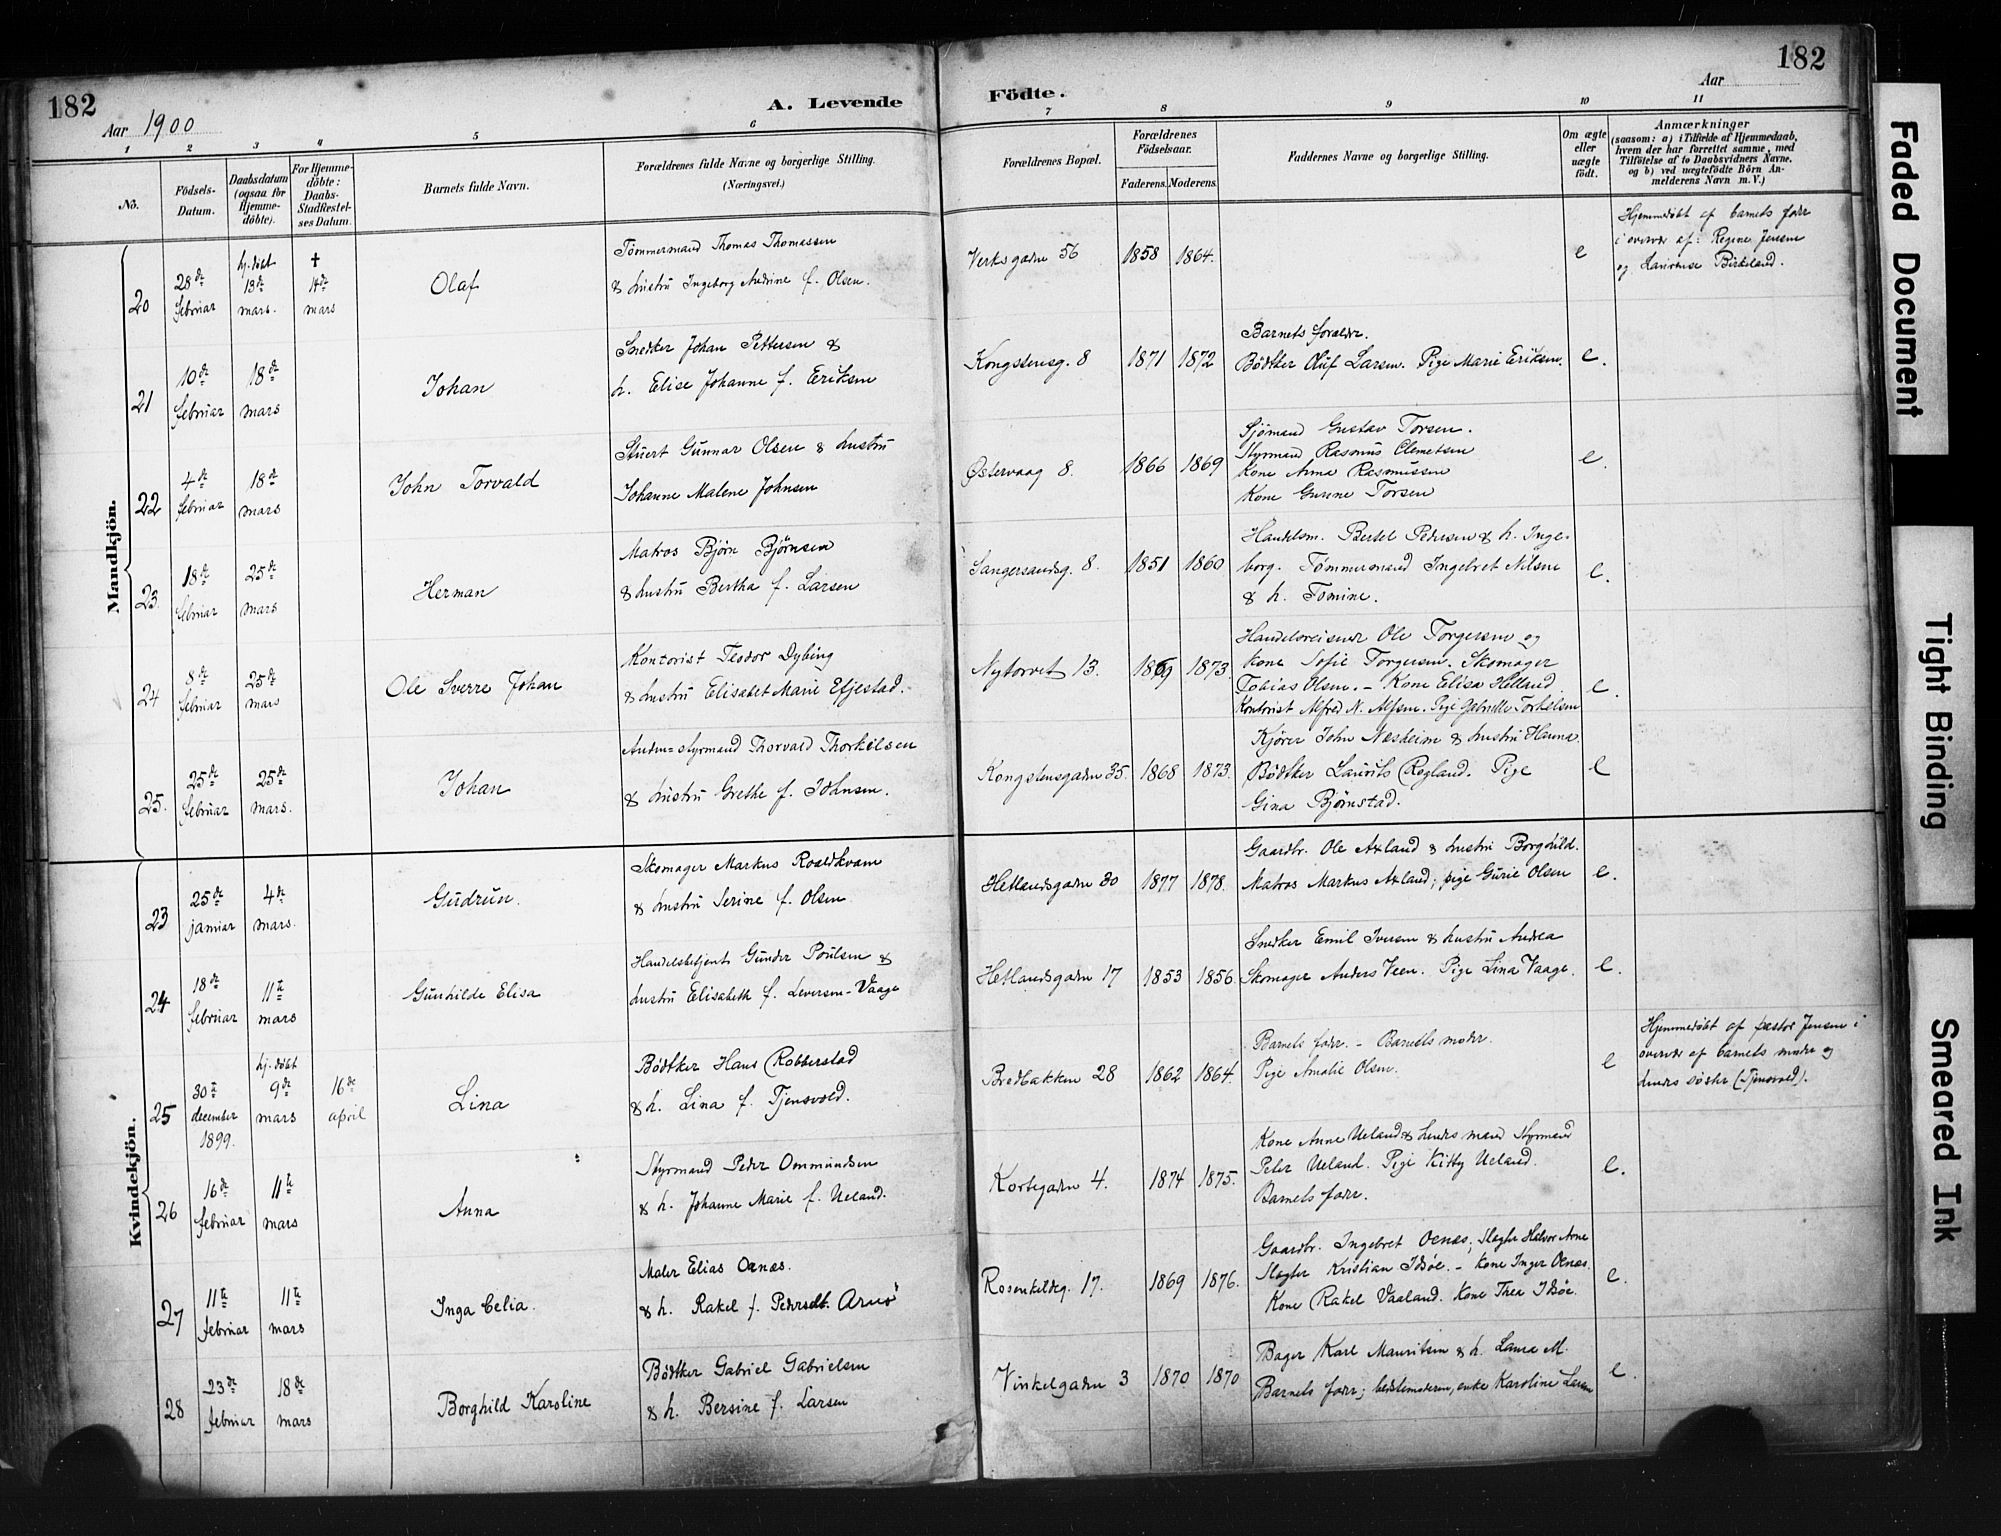 182
Aar 1900
A. Levende
Födte.
Aar
182
1 2 3 4 5 6 7 8 9 10 11
No.
Födsels-Datum.
Daabsdatum (ogsaa for Hjemmedöbte).
For Hjemmedöbte: Daabs-Stadfæstelses Datum.
Barnets fulde Navn.
Forældrenes fulde Navne og borgerlige Stilling. (Næringsvei.)
Forældrenes Bopæl.
Forældrenes Födselsaar.
Faderens. Moderens.
Faddernes Navne og borgerlige Stilling.
Om ægte eller uægte födt.
Anmærkninger
(saasom: a) i Tilfælde af Hjemmedaab, hvem der har forrettet samme, med Tilföielse af to Daabsvidners Navne. og b) ved uægtefödte Börn Anmelderens Navn m. V.)
Mandkjön.
20 28de februar hj. døbt 13de mars. † 14de mars
Olaf
Tømmermand Thomas Thomassen
& hustru Ingeborg Andrine f. Olsen.
Verksgaden 56 1858 1864.
e
Hjemmedøbt af barnets fader
i overvær af: Regine Jensen
og Laurense Birkeland.
21 10de februar 18de mars
Johan
Snedker Johan Pettersen &
h. Elise Johanne f. Eriksen
Kongstensg. 8 1871 1872
Barnets forældre.
Bødtker Oluf Larsen. Pige Marie Eriksen.
e.
22 4de februar 18de mars
John Torvald
Stuert Gunnar Olsen & hustru
Johanne Malene Johnsen
Østervaag 8. 1866 1869
Sjømand Gustav Torsen.
Styrmand Rasmus Clemetsen
Kone Anna Rasmussen
Kone Gurine Torsen
e.
23. 18de februar 25de mars
Herman
Matros Bjørn Bjørnsen
& hustru Bertha f. Larsen
Sangersandsg. 8. 1851 1860
Handelsm. Bertel Pedersen & h. Inge-
borg. Tømmermand Ingebret Nilsen
& h. Tomine.
e.
24 8de februar 25de mars
Ole Sverre Johan
Kontorist Teodor Dybing
& hustru Elisabet Marie Efjestad.
Nytorvet 13. 1869 1873.
Handelsreisende Ole Torgersen og
kone Sofie Torgersen. Skomager
Tobias Olsen. - Kone Elisa Helland.
Kontorist Alfred N. Alfsen. Pige Gabrielle Torkelsen
e.
25. 25de februar 25de mars.
Johan
Anden-styrmand Thorvald Thorkilsen
& hustru Grethe f. Johnsen.
Kongstensgaden 35. 1868 1873.
Kjører John Næsheim & hustru Hanna.
Bødtker Laurits Rogland. Pige
Gina Bjørnstad.
e
Kvindekjön.
23 25de januar 4de mars.
Gudrun.
Skomager Markus Roaldkvam
& hustru Serine f. Olsen
Hetlandsgaden 30 1877 1878.
Gaardbr. Ole Axland & hustru Borghild.
Matros Markus Axland; pige Gurie Olsen
e.
24 18de februar 11te mars
Gunhilde Elisa
Handelsbetjent Gunder Poulsen &
hustru Elisabeth f. Iversen-Vaage
Hetlandsgaden 17 1853 1856.
Snedker Emil Iversen & hustru Andrea
Skomager Anders Veen. Pige Lina Vaage.
e.
25 30te december 1899. hj. døbt 9de mars 16de april
Lina
Bødtker Hans Robberstad
& h. Lina f. Tjensvold.
Bredbakken 28 1862 1864.
Barnets fader. - Barnets moder.
Pige Amalie Olsen.
e
Hjemmedøbt af pastor Jensen i
overvær af barnets moder og
hendes søster (Tjensvold).
26 16de februar 11te mars
Anna
Styrmand Peder Ommundsen
& h. Johanne Marie f. Ueland.
Kortegaden 4. 1874 1875.
Kone Anne Ueland & hendes mand styrmand
Peter Ueland. Pige Kitty Ueland.
Barnets fader.
e.
27 11te februar 11te mars
Inga Celia.
Maler Elias Oenæs.
& h. Rakel f. Pedersdt.
Rosenkildeg. 17. 1869 1876.
Gaardbr. Ingebret Oenæs; Slagter Halvor Arne
Slagter Kristian Idsøe. - Kone Inger Oenæs.
Kone Rakel Vaaland. Kone Thea Idsøe.
e.
28 23de februar 18de mars
Borghild Karoline
Bødtker Gabriel Gabrielsen
& h. Bersine f. Larsen
Vinkelgaden 3 1870 1870
Bager Karl Mauritsen & h. Laura M.
Barnets fader; bedstemoderen, enke Karoline Larsen
e.
Faded Document
Tight Binding
Smeared Ink